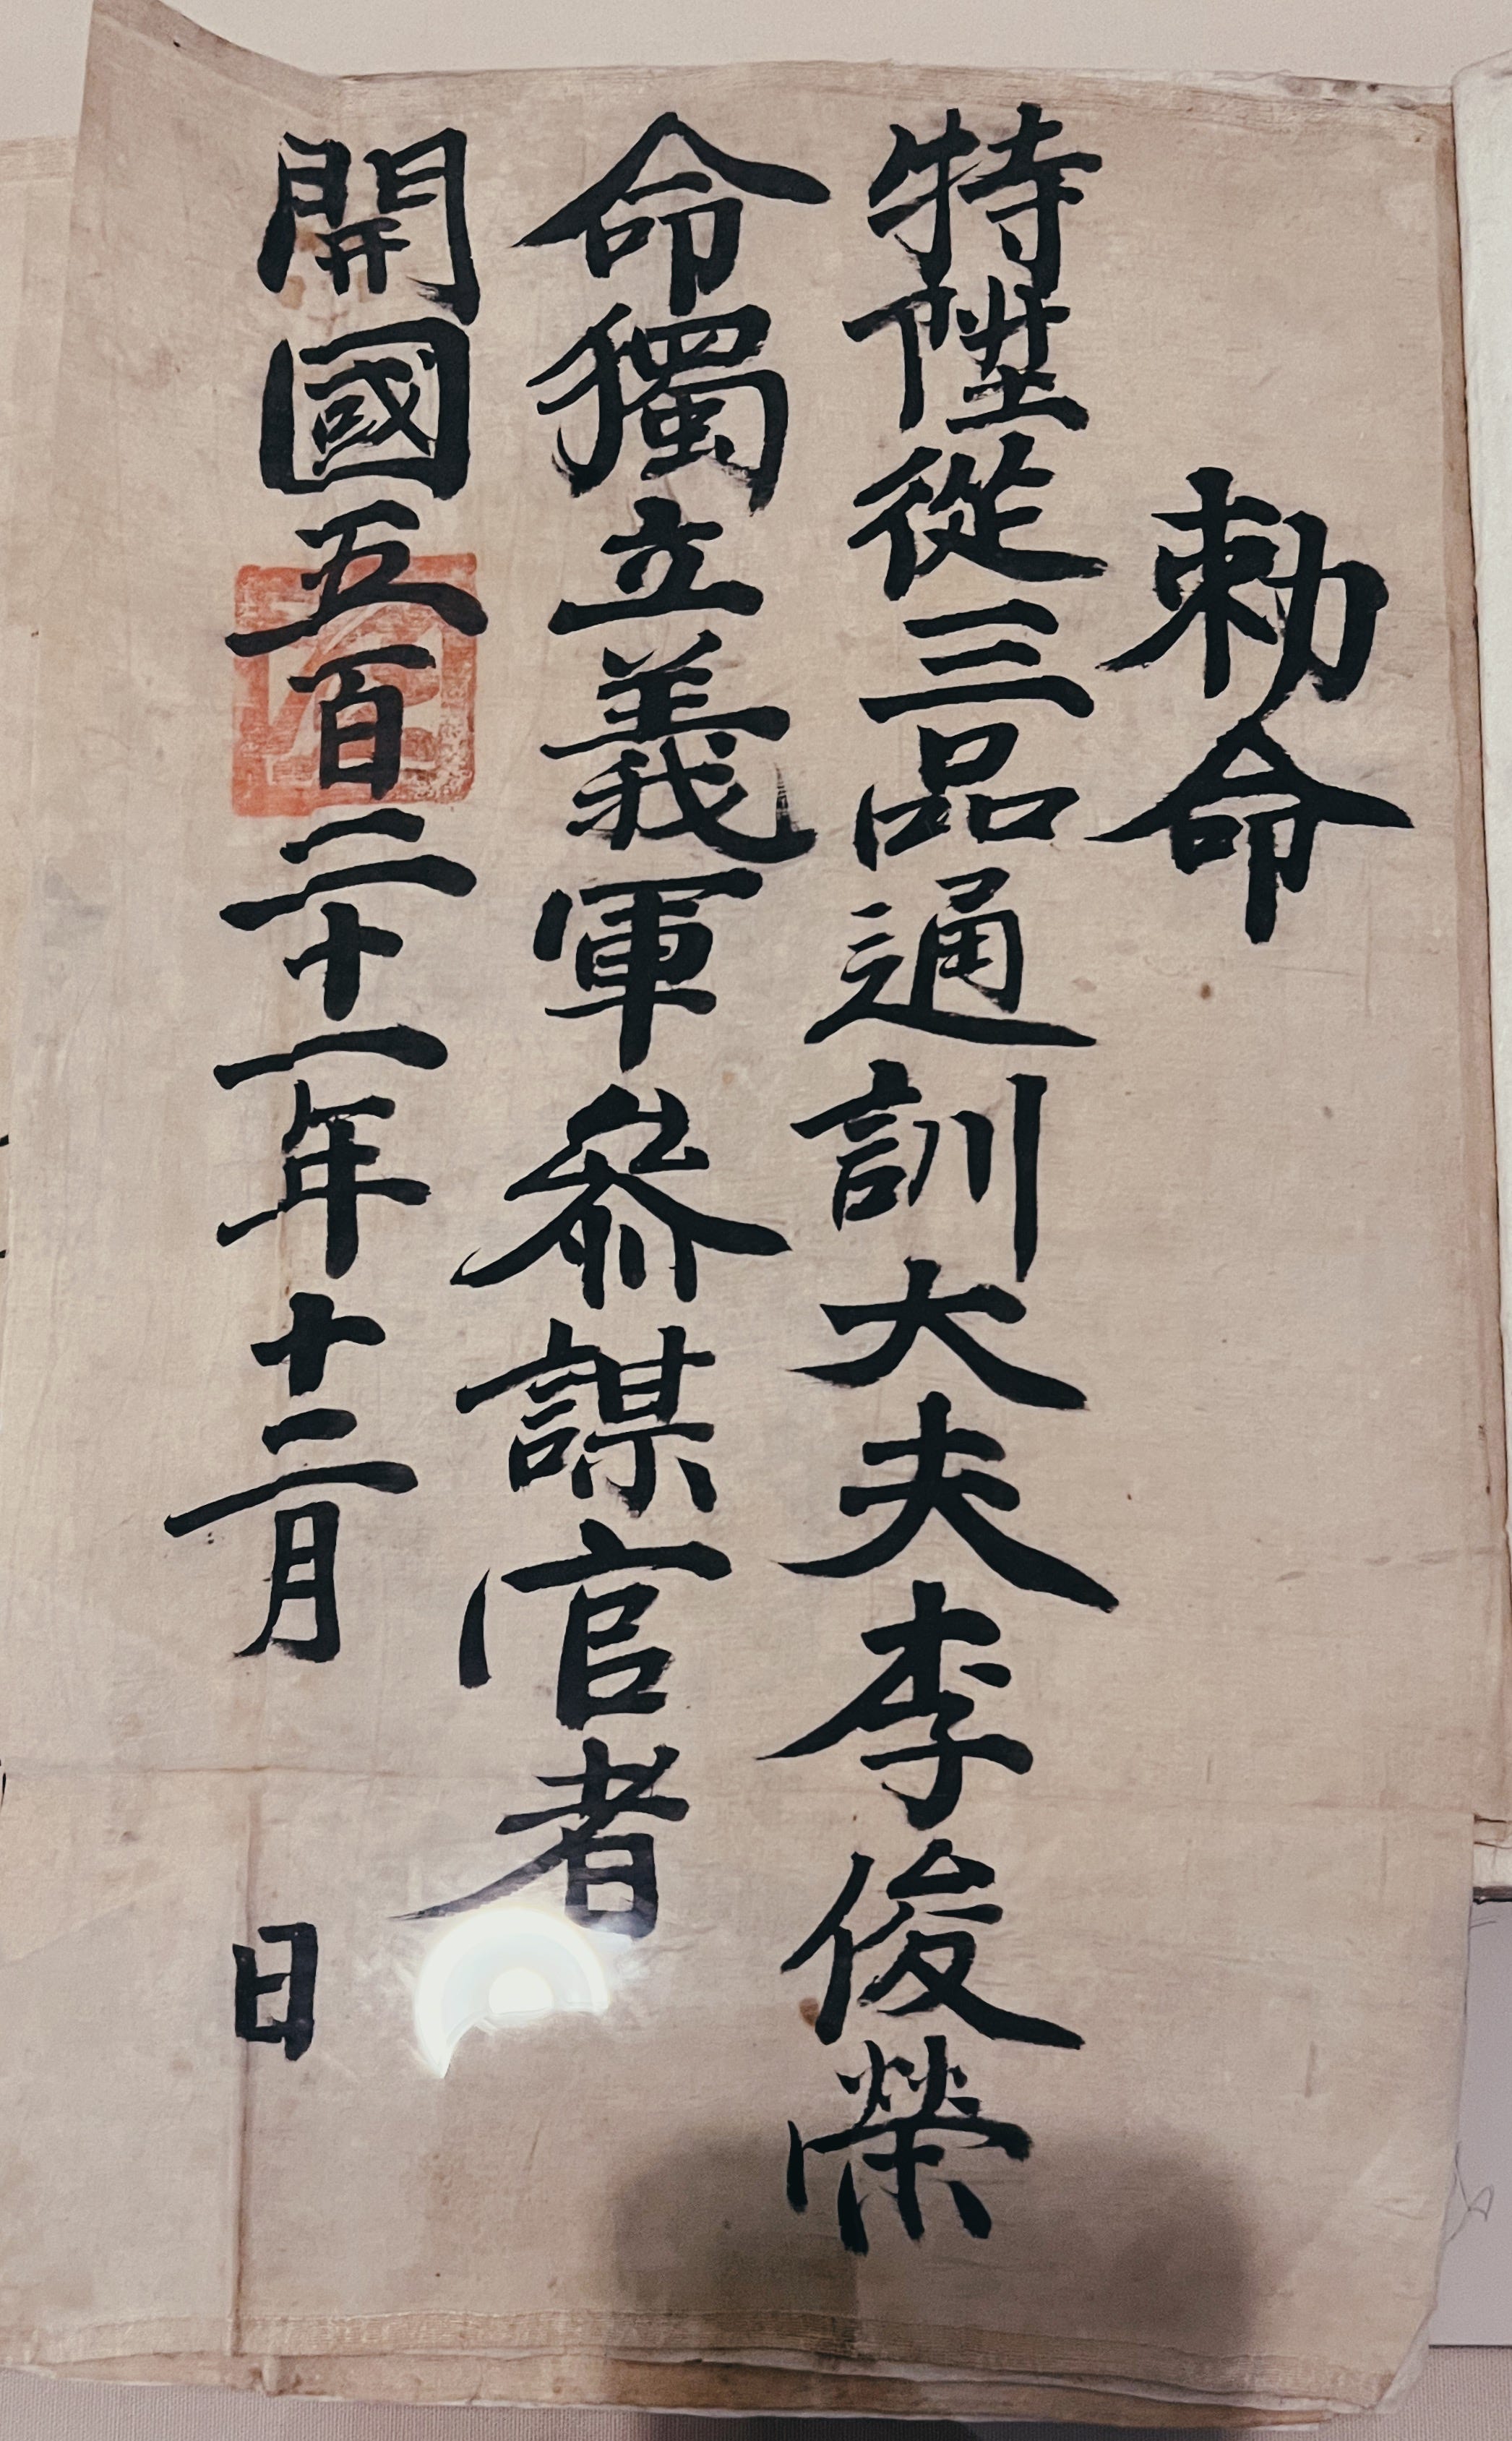 勅命
特陞從三品通訓大夫李俊榮
命獨立義軍參謀官者
開國五百二十一年十二月 日